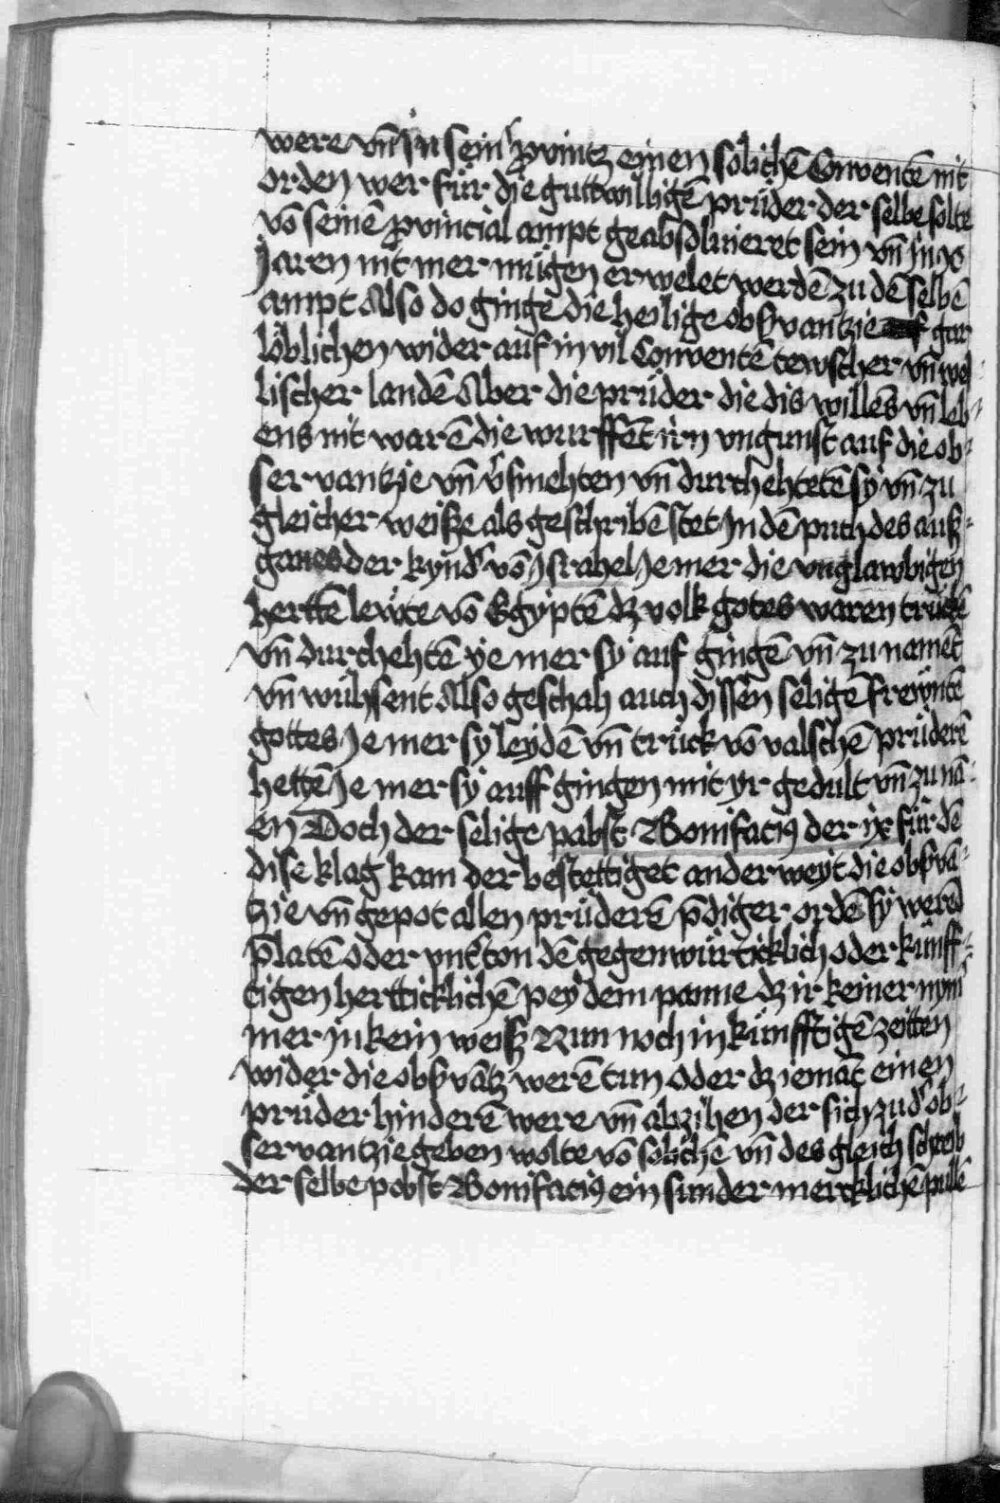 were vn̄ in sein̛ ꝓvintz einen sölichē Conventē nit
orden wer für die guttwilligē prüder der selbe solte
vō seinē ꝓvincial ampt geabsolvieret sein vn̄ in x
Jaren nit mer mügen erwelet werdē zu dē selbē
ampt Also do gingē die heilige obẜvantzie gar
löblichen wider auf in vil Conventē tewscher vn̄ wel
lischer landē Aber die prüder die dis willēs vn̄ leb⸗
ens nit warē die wurffēt irn ungunst auf die ob⸗
servantzie vn̄ v̛smehten vn̄ durchehtetē sy vn̄ zu
gleicher weiße als geschribē stet In dē puch des auß⸗
ganes der kynd̛ vō Israhel Je mer die unglawbigen
herttē lewte vō Egyptē dz volk gotes waren trückē
vn̄ durchehtē ye mer sy auf gingē vn̄ zu namēt
vn̄ wuhsent Also geschah auch dissen seligē frewntē
gottes Je mer sy leydē vn̄ trück vō valschē prüderē
hettē Je mer sy auff gingen mit yr gedult vn̄ zu nā⸗
en Doch der selige pabst Bonifaciꝯ der ix für dē
dise klag kam der bestettiget anderweyt die obẜvā⸗
tzie vn̄ gepot allen prüderē p̄diger ordē sy werēd
p̄latē oder unt̛ton dē gegenwürticklich oder künff⸗
tigen herttickl​ichē pey dem panne dz ir keiner nym
mer in kein weiß Nun noch in künfftigē zeitten
wider die obẜvātz werē tun oder dz iemāt einen
prüder hinderē were vn̄ abzihen der sich zu d̛ ob⸗
servantzie geben wolte vō sölichē vn̄ des gleich schreib
der selbe pobst Bonifaciꝯ ein sunder mercklichē pullē